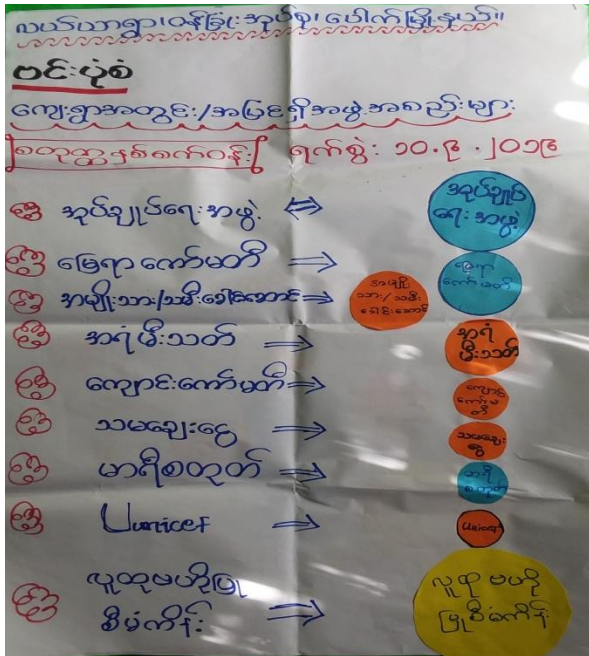 လယ်ယာရွာ၊ ဝန်ခြုံးအုပ်စု၊ ပေါက်မြို့နယ်။
ဗင်းပုံစံ
ကျေးရွာအတွင်း/အပြင်ရှိအဖွဲ့အစည်းများ
စတုတ္ထနှစ်စက်ဝန်း ရက်စွဲ: ၁၀.၉.၂၀၁၉
အုပ်ချုပ်ရေးအဖွဲ့ ⇔ အုပ်ချုပ်ရေးအဖွဲ့
မြေရာကော်မတီ ⇒ မြေရာကော်မတီ
အမျိုးသား/သမီးခေါင်းဆောင် ⇒ အမျိုးသား/သမီးခေါင်းဆောင်
အရံမီးသတ် ⇒ အရံမီးသတ်
ကျောင်းကော်မတီ ⇒ ကျောင်းကော်မတီ
သမချေးငွေ ⇒ သမချေးငွေ
မာရီစတုတ် ⇒ မာရီစတုတ်
Unicef ⇒ Unicef
လူထုဗဟိုပြု ⇒ လူထုဗဟို
စီမံကိန်း ပြုစီမံကိန်း